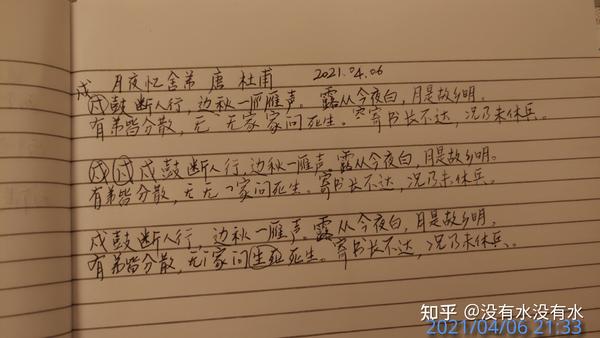 月夜忆舍弟 唐 杜甫 2021.04.06
戍
戍鼓断人行，边秋一雁雁声。露从今夜白，月是故乡明。
有弟皆分散，无 无家家问死生。寄书长不达，况乃未休兵。
戍鼓断人行，边秋一雁声。露从今夜白，月是故乡明。
有弟皆分散，无无家问死生。寄书长不达，况乃未休兵。
戍鼓断人行，边秋一雁声。露从今夜白，月是故乡明。
有弟皆分散，无家问生死死生。寄书长不达，况乃未休兵。
知乎 @没有水没有水
2021/04/06 21:33